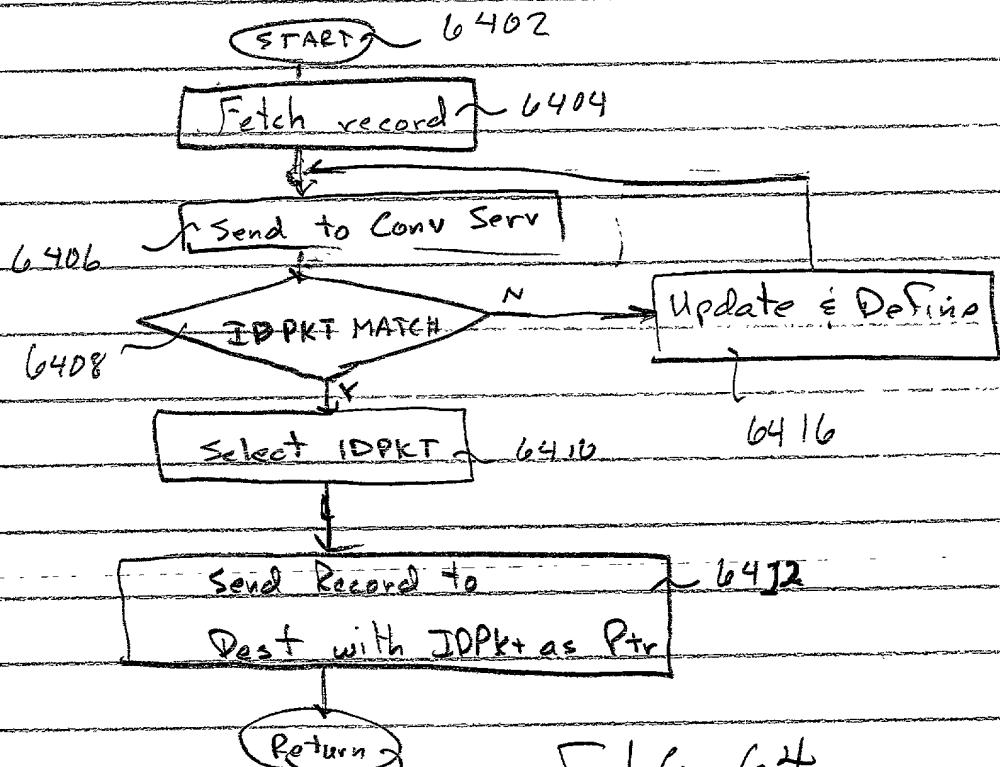 START 6402
Fetch record 6404
Send to Conv Serv
6406
IDPKT MATCH
N
Update & Define
6408
Y
6416
Select IDPKT 6410
Send Record to 6412
Dest with IDPkt as Ptr
Return
FIG. 64